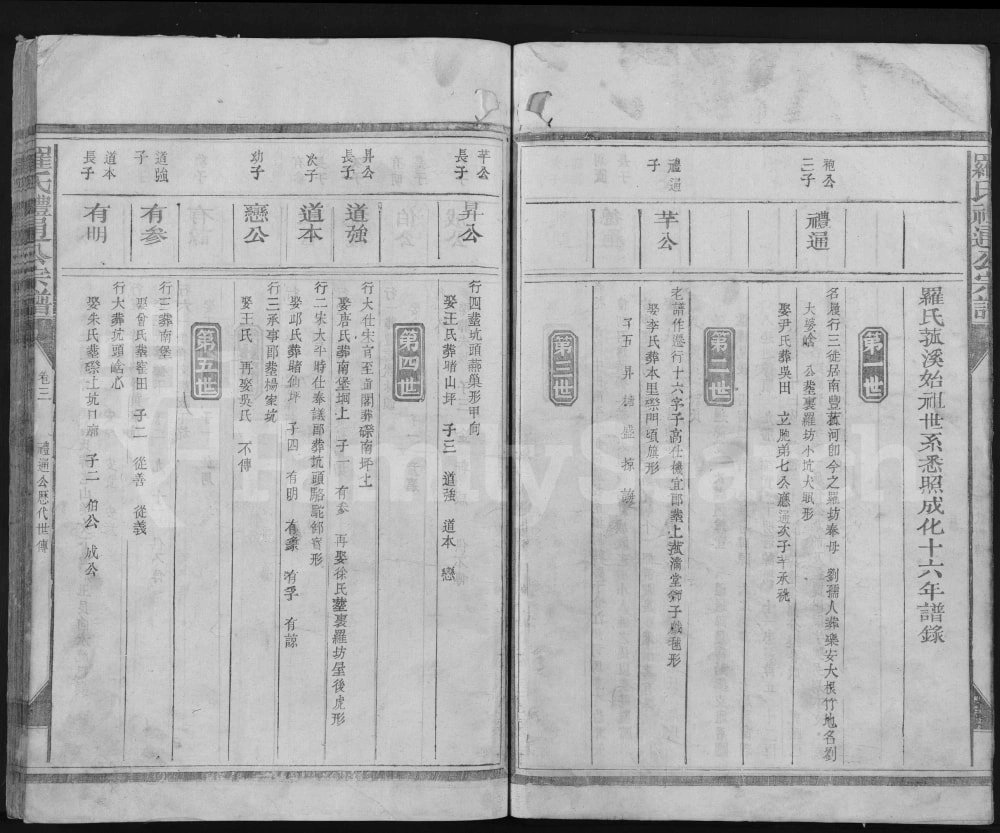 羅氏禮通公宗譜
羅氏菰溪始祖世系悉照成化十六年譜錄
第一世
袍公
三子
禮通
名履行三徙居南豐菰河卽今之羅坊奉母 劉孺人葬樂安大根竹地名劉
公墓裏羅坊小坑犬眠形
娶尹氏葬吳田 立胞弟七公應通次子芉承祧
第二世
禮通
子
芉公
老譜作
行十六字子高仕總宜郎葬上
堂獅子戲毬形
娶李氏葬本里
門頃旗形
子五 昇
盛
第三世
芉公
長子
昇公
行四葬坑頭燕巢形甲向
娶王氏葬睹山坪 子三 道強 道本 戀
第四世
昇公
長子
道強
行大仕宋官至
閣葬磜南坪上
娶唐氏葬南堡坰上 子一 有參 再娶徐氏葬裏羅坊屋後虎形
次子
道本
行二宋太平時仕奉議郎葬坑頭駱駝卸寶形
娶邱氏葬睹仙坪 子四 有明 有
有孚 有諒
幼子
戀公
行三承事郎葬楊家坑
娶王氏 再娶吳氏 不傳
第五世
道強
子
有參
行三葬南堡
娶曾氏葬崔田 子二 從善 從義
道本
長子
有明
行大葬坑頭
心
娶朱氏葬磜上坑口
子二 伯公 成公
羅氏禮通公宗譜
卷三
禮通公歷代世傳
FamilySearch